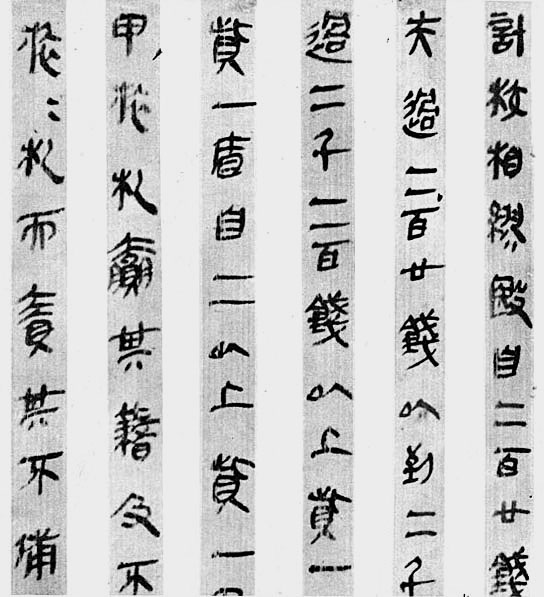 計校相繆殹自二百廿錢
夫過二百廿錢以到二千
過二千二百錢以上貲一
貲一盾自二以上貲一
甲旅札贏其籍及不
旅=札而責其不備